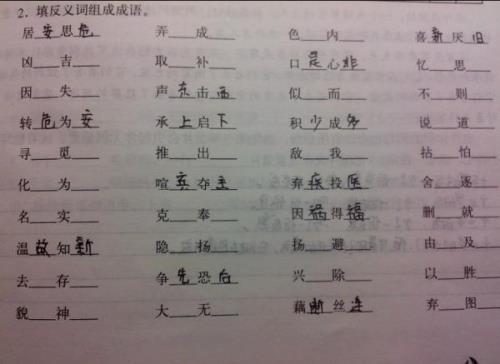 2. 填反义词组成成语。
居安思危 弄___成___ 色___内___ 喜新厌旧
凶___吉___ 取___补___ 口是心非 忆___思___
因___失___ 声东击西 似___而___ 不___则___
转危为安 承上启下 积少成多 说___道___
寻___觅___ 推___出___ 敌___我___ 祜___怕___
化___为___ 喧宾夺主 弃疾投医 舍___逐___
名___实___ 克___奉___ 因祸得福 删___就___
温故知新 隐___扬___ 扬___避___ 由___及___
去___存___ 争先恐后 兴___除___ 以___胜___
貌___神___ 大___无___ 藕断丝连 弃___图___